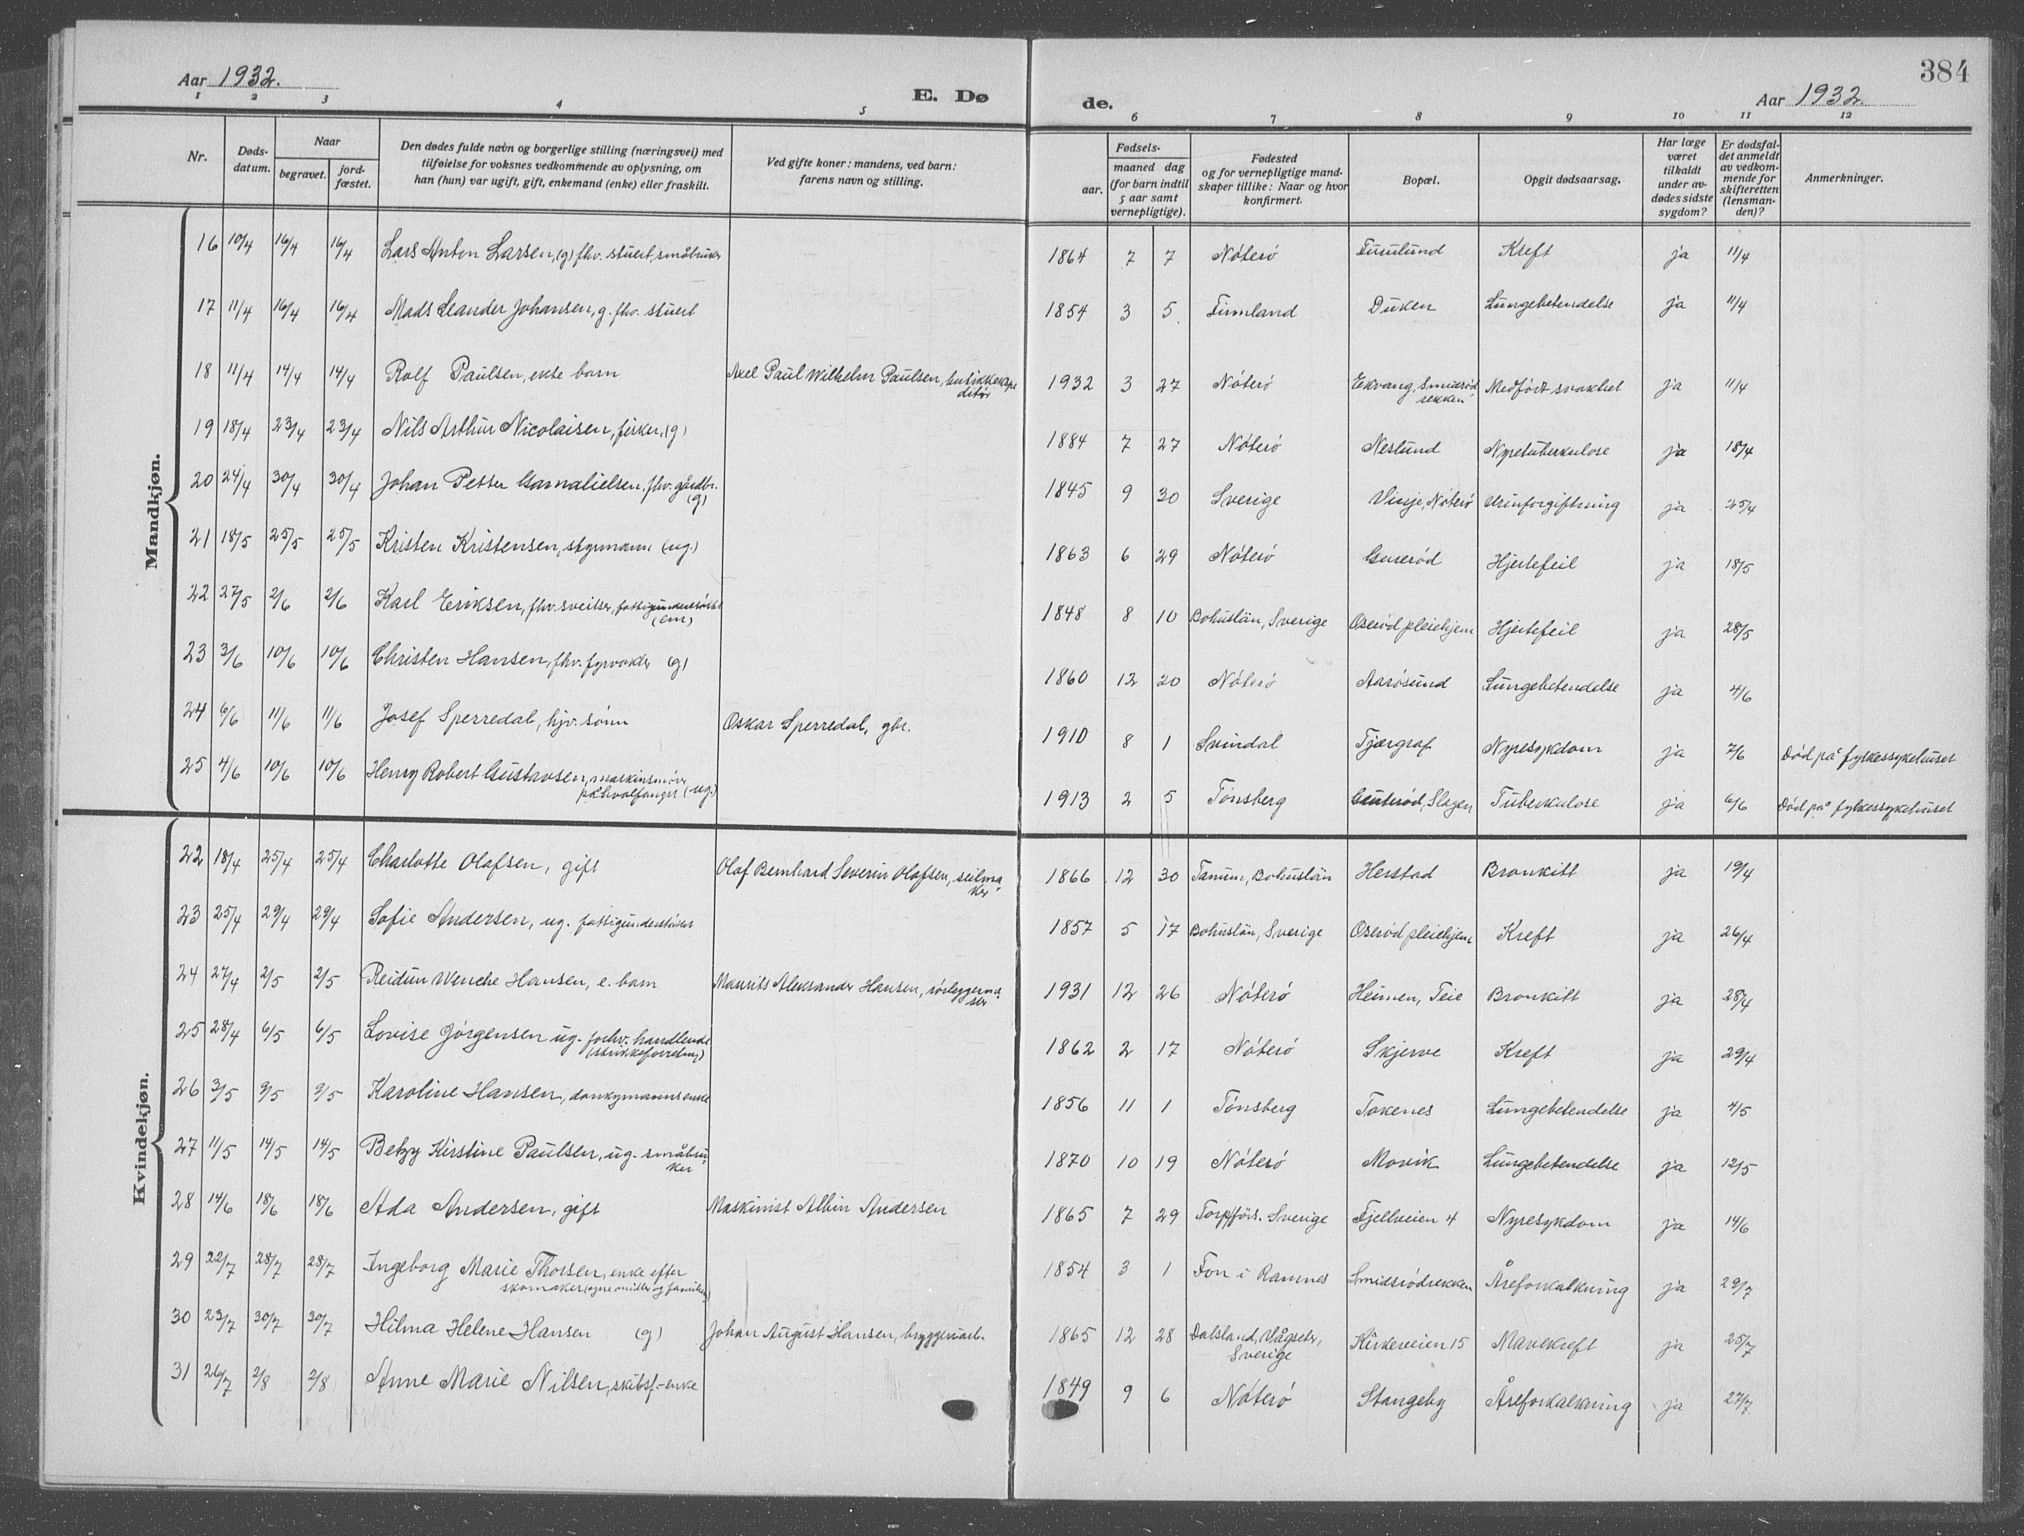 384
Aar 1932. E. Dø de. Aar 1932.
1 2 3 4 5 6 7 8 9 10 11 12
Nr. Døds-datum. Naar begravet. jord-fæstet. Den dødes fulde navn og borgerlige stilling (næringsvei) med tilføielse for voksnes vedkommende av oplysning, om han (hun) var ugift, gift, enkemand (enke) eller fraskilt. Ved gifte koner: mandens, ved barn: farens navn og stilling. Fødsels- aar. maaned dag (for barn indtil 5 aar samt vernepligtige). Fødested og for vernepligtige mandskaper tillike: Naar og hvor konfirmert. Bopæl. Opgit dødsaarsag. Har læge været tilkaldt under avdødes sidste sygdom? Er dødsfaldet anmeldt av vedkommende for skifteretten (lensmanden)? Anmerkninger.
Mandkjøn.
16 10/4 16/4 16/4 Lars Anton Larsen, (g) fhv. stuert, småbruker 1864 7 7 Nøterø Kreft ja 11/4
17 11/4 16/4 16/4 Mads Leander Johansen, g. fhv. stuert 1854 3 5 Duken Lungebetendelse ja 11/4
18 11/4 14/4 14/4 Rolf Paulsen, ekte barn Axel Paul Wilhelm Paulsen, butikkekspeditør 1932 3 27 Nøterø Ekvang, Smidsrødrekken Medfødt svakhet ja 11/4
19 18/4 23/4 23/4 Nils Arthur Nicolaisen, fisker, (g) 1884 7 27 Nøterø Neslund Nyretuberkulose ja 18/4
20 24/4 30/4 30/4 Johan Petter Gamalielsen, fhv. gårdbr. (g) 1845 9 30 Sverige Nøterø Urinforgiftning ja 25/4
21 18/5 25/5 25/5 Kristen Kristensen, styrmann (ug.) 1863 6 29 Nøterø Hjertefeil ja 18/5
22 27/5 2/6 2/6 Karl Eriksen, fhv. sveitser, fattigunderstøttet (em) 1848 8 10 Bohuslän, Sverige Oserød pleiehjem Hjertefeil ja 28/5
23 3/6 10/6 10/6 Christen Hansen, fhv. fyrvokter (g) 1860 12 20 Nøterø Aarøsund Lungebetendelse ja 4/6
24 6/6 11/6 11/6 Josef Sperredal, hjv. sønn Oskar Sperredal, gbr. 1910 8 1 Svindal Tjærgraf Nyresykdom ja 7/6 Død på fylkessykehuset
25 4/6 10/6 10/6 Henry Robert Gustavsen, maskinsmører på hvalfanger (ug.) 1913 2 5 Tønsberg Gauterød, Slagen Tuberkulose ja 6/6 Død på fylkessykehuset
Kvindekjøn.
22 18/4 25/4 25/4 Charlotte Olafsen, gift Olaf Bernhard Severin Olafsen, seilmaker 1866 12 30 Tanum, Bohuslän Herstad Bronkitt ja 19/4
23 25/4 29/4 29/4 Sofie Andersen, ug. fattigunderstøttet 1857 5 17 Bohuslän, Sverige Oserød pleiehjem Kreft ja 26/4
24 27/4 2/5 2/5 Reidun Wenche Hansen, e. barn Maurits Aleksander Hansen, rørleggermester 1931 12 26 Nøterø Heimen, Teie Bronkitt ja 28/4
25 28/4 6/5 6/5 Lovise Jørgensen ug. forhv. handlende (strikkeforretning) 1862 2 17 Nøterø Skjerve Kreft ja 29/4
26 3/5 9/5 9/5 Karoline Hansen, donkymannsenke 1856 11 1 Tønsberg Tokenes Lungebetendelse ja 4/5
27 11/5 14/5 14/5 Betzy Kirstine Paulsen, ug. småbruker 1870 10 19 Nøterø Movik Lungebetendelse ja 12/5
28 14/6 18/6 18/6 Ada Andersen, gift Maskinist Albin Andersen 1865 7 29 Torpførs. Sverige Fjellveien 4 Nyresykdom ja 14/6
29 22/7 28/7 28/7 Ingeborg Marie Thorsen, enke efter skomaker (egne midler og familien) 1854 3 1 Fon i Ramnes Smidsrødrekken Åreforkalkning ja 29/7
30 23/7 30/7 30/7 Hilma Helene Hansen (g) Johan August Hansen, bryggeriarb. 1865 12 28 Dalsland, Sverige Kirkeveien 15 Mavekreft ja 25/7
31 26/7 2/8 2/8 Anne Marie Nilsen, skibsf.-enke 1849 9 6 Nøterø Stangeby Åreforkalkning ja 27/7